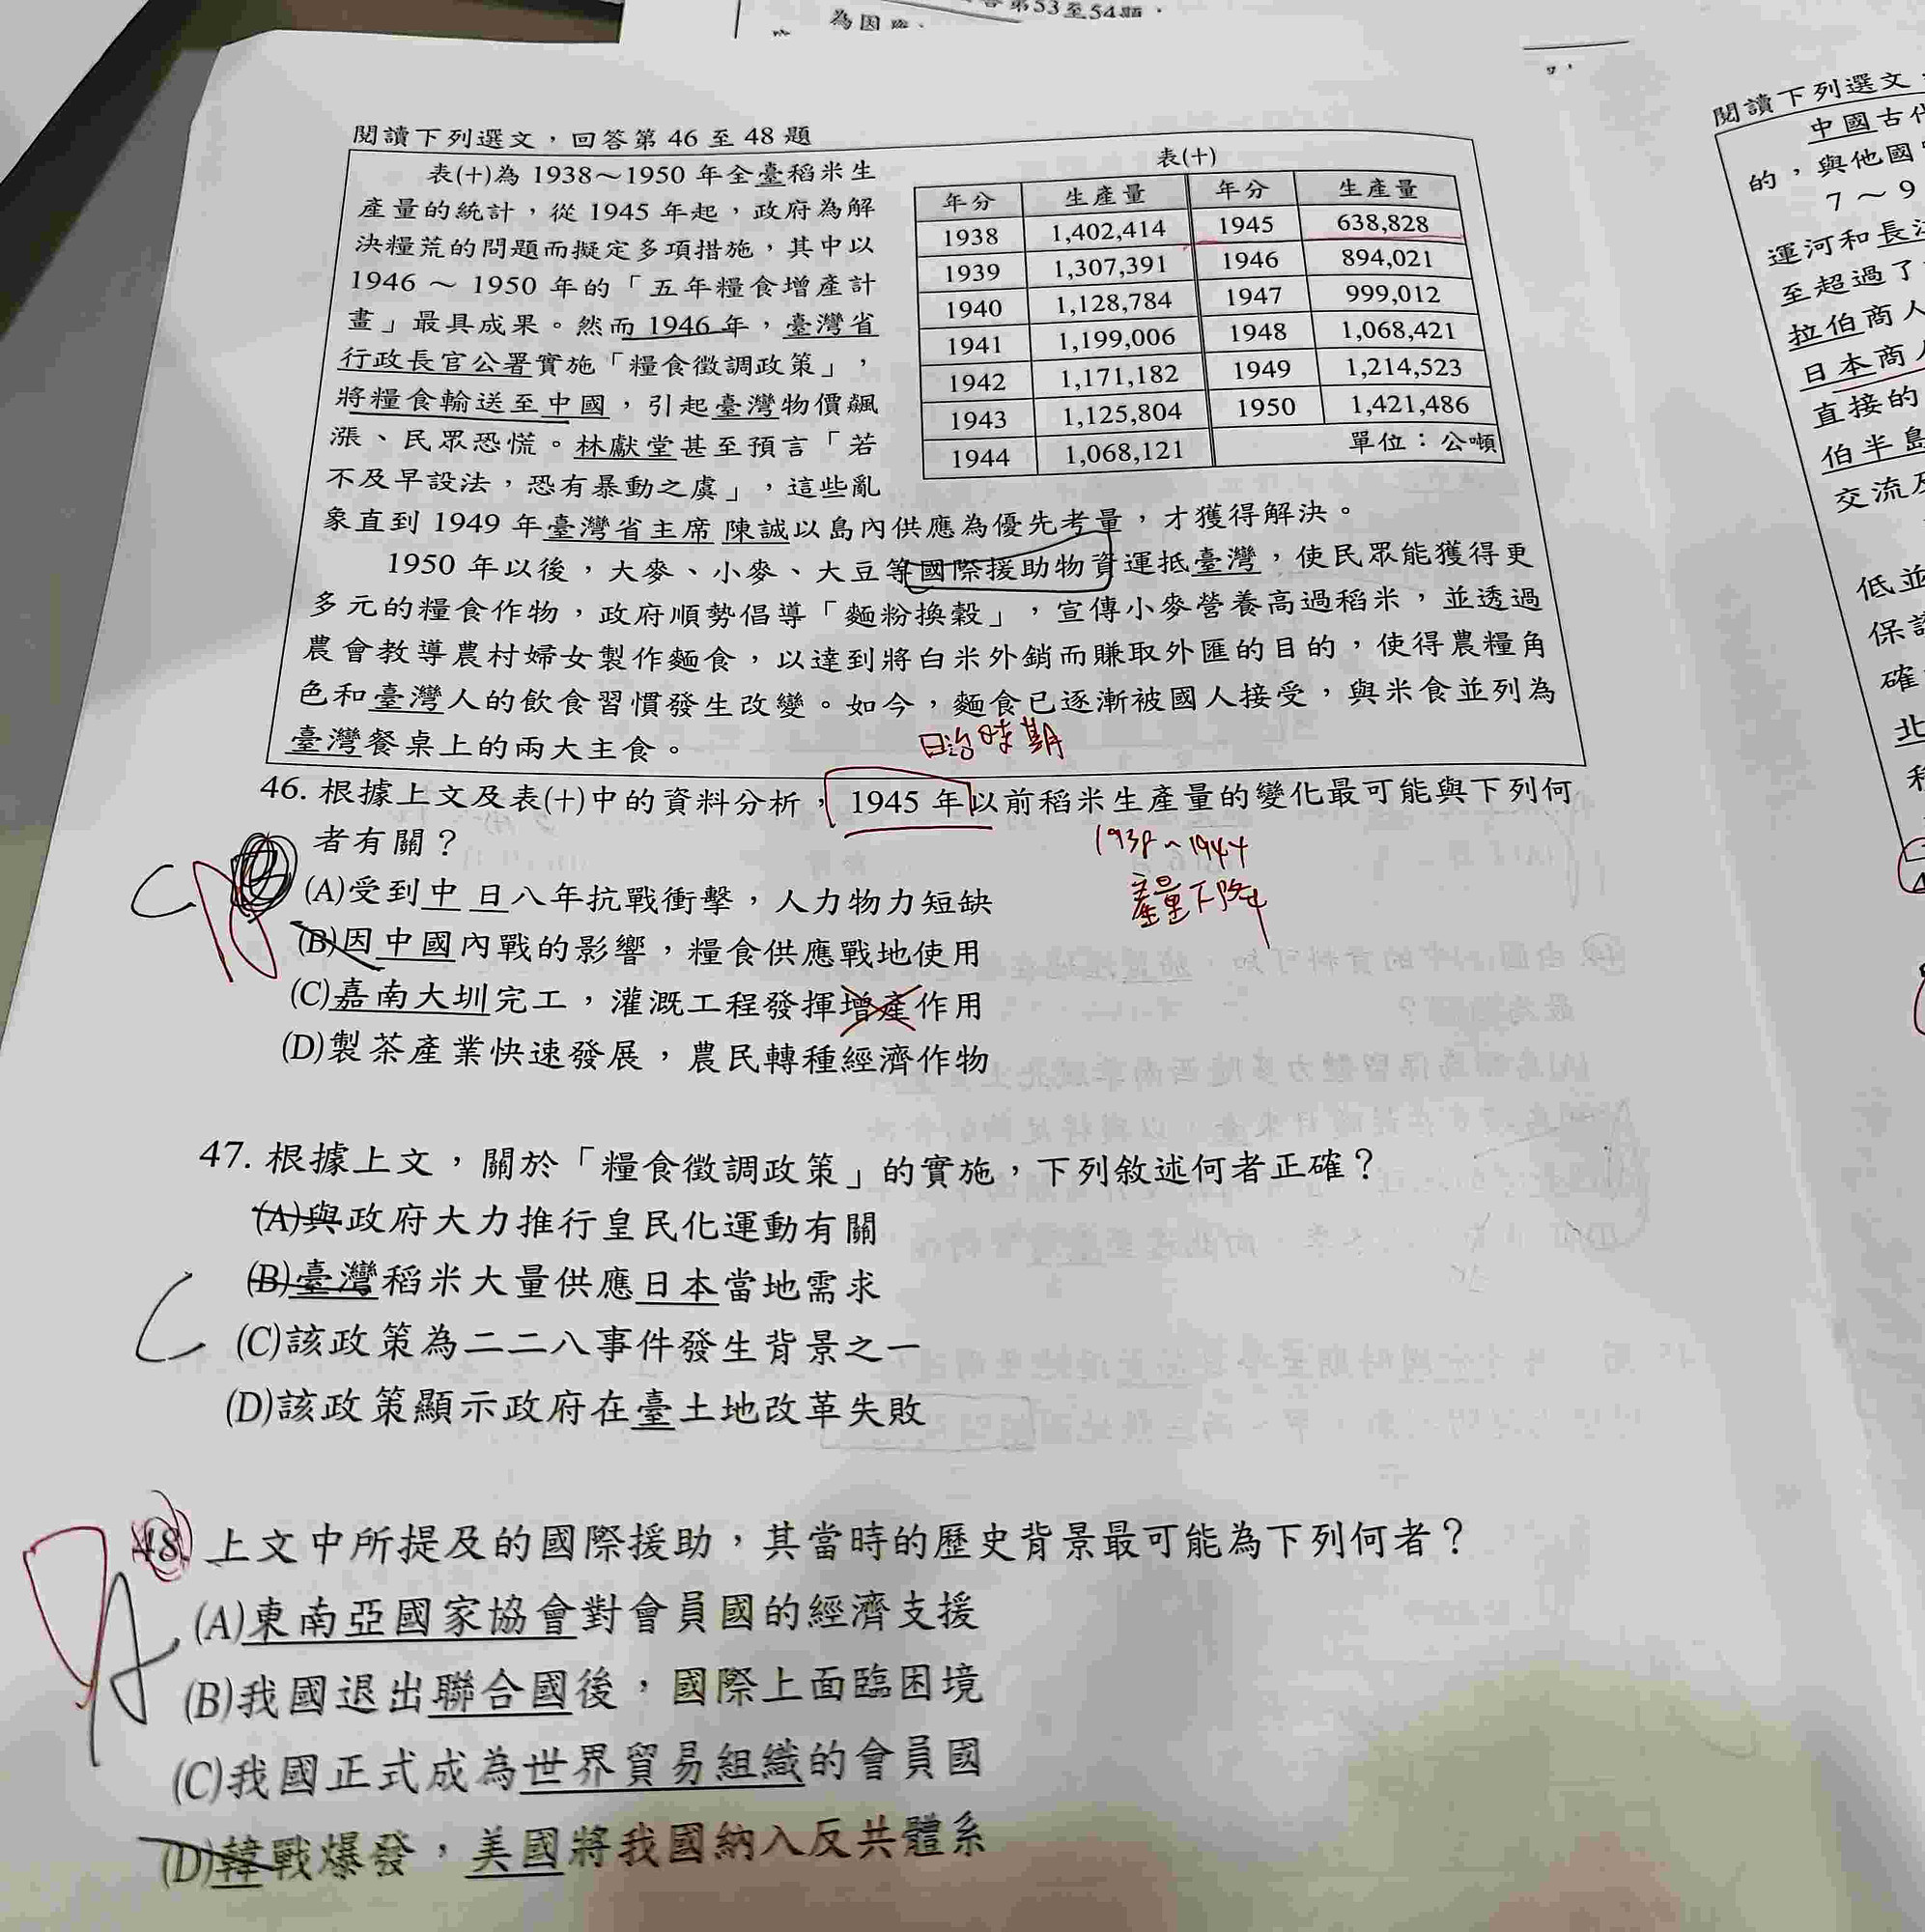 答第53至54題。
為因應、
閱讀下列選文,回答第 46 至 48 題
表(十)為 1938~1950 年全臺稻米生
產量的統計,從 1945 年起,政府為解
決糧荒的問題而擬定多項措施,其中以
1946 ~ 1950 年的「五年糧食增產計
畫」最具成果。然而 1946 年,臺灣省
行政長官公署實施「糧食徵調政策」,
將糧食輸送至中國,引起臺灣物價飆
漲、民眾恐慌。林獻堂甚至預言「若
不及早設法,恐有暴動之虞」,這些亂
象直到 1949 年臺灣省主席 陳誠以島內供應為優先考量,才獲得解決。
表(十)
年分 生產量 年分 生產量
1938 1,402,414 1945 638,828
1939 1,307,391 1946 894,021
1940 1,128,784 1947 999,012
1941 1,199,006 1948 1,068,421
1942 1,171,182 1949 1,214,523
1943 1,125,804 1950 1,421,486
1944 1,068,121 單位:公噸
1950 年以後,大麥、小麥、大豆等國際援助物資運抵臺灣,使民眾能獲得更
多元的糧食作物,政府順勢倡導「麵粉換穀」,宣傳小麥營養高過稻米,並透過
農會教導農村婦女製作麵食,以達到將白米外銷而賺取外匯的目的,使得農糧角
色和臺灣人的飲食習慣發生改變。如今,麵食已逐漸被國人接受,與米食並列為
臺灣餐桌上的兩大主食。
日治時期
46. 根據上文及表(十)中的資料分析,1945 年以前稻米生產量的變化最可能與下列何
者有關?
1938~1944
產量下降
(A)受到中 日八年抗戰衝擊,人力物力短缺
(B)因中國內戰的影響,糧食供應戰地使用
(C)嘉南大圳完工,灌溉工程發揮增產作用
(D)製茶產業快速發展,農民轉種經濟作物
C
47. 根據上文,關於「糧食徵調政策」的實施,下列敘述何者正確?
(A)與政府大力推行皇民化運動有關
(B)臺灣稻米大量供應日本當地需求
(C)該政策為二二八事件發生背景之一
(D)該政策顯示政府在臺土地改革失敗
C
48. 上文中所提及的國際援助,其當時的歷史背景最可能為下列何者?
(A)東南亞國家協會對會員國的經濟支援
(B)我國退出聯合國後,國際上面臨困境
(C)我國正式成為世界貿易組織的會員國
(D)韓戰爆發,美國將我國納入反共體系
閱讀下列選文,
中國古代
的,與他國
7~9
運河和長江
至超過了
拉伯商人
日本商人
直接的
伯半島
交流及
低並
保護
確
北